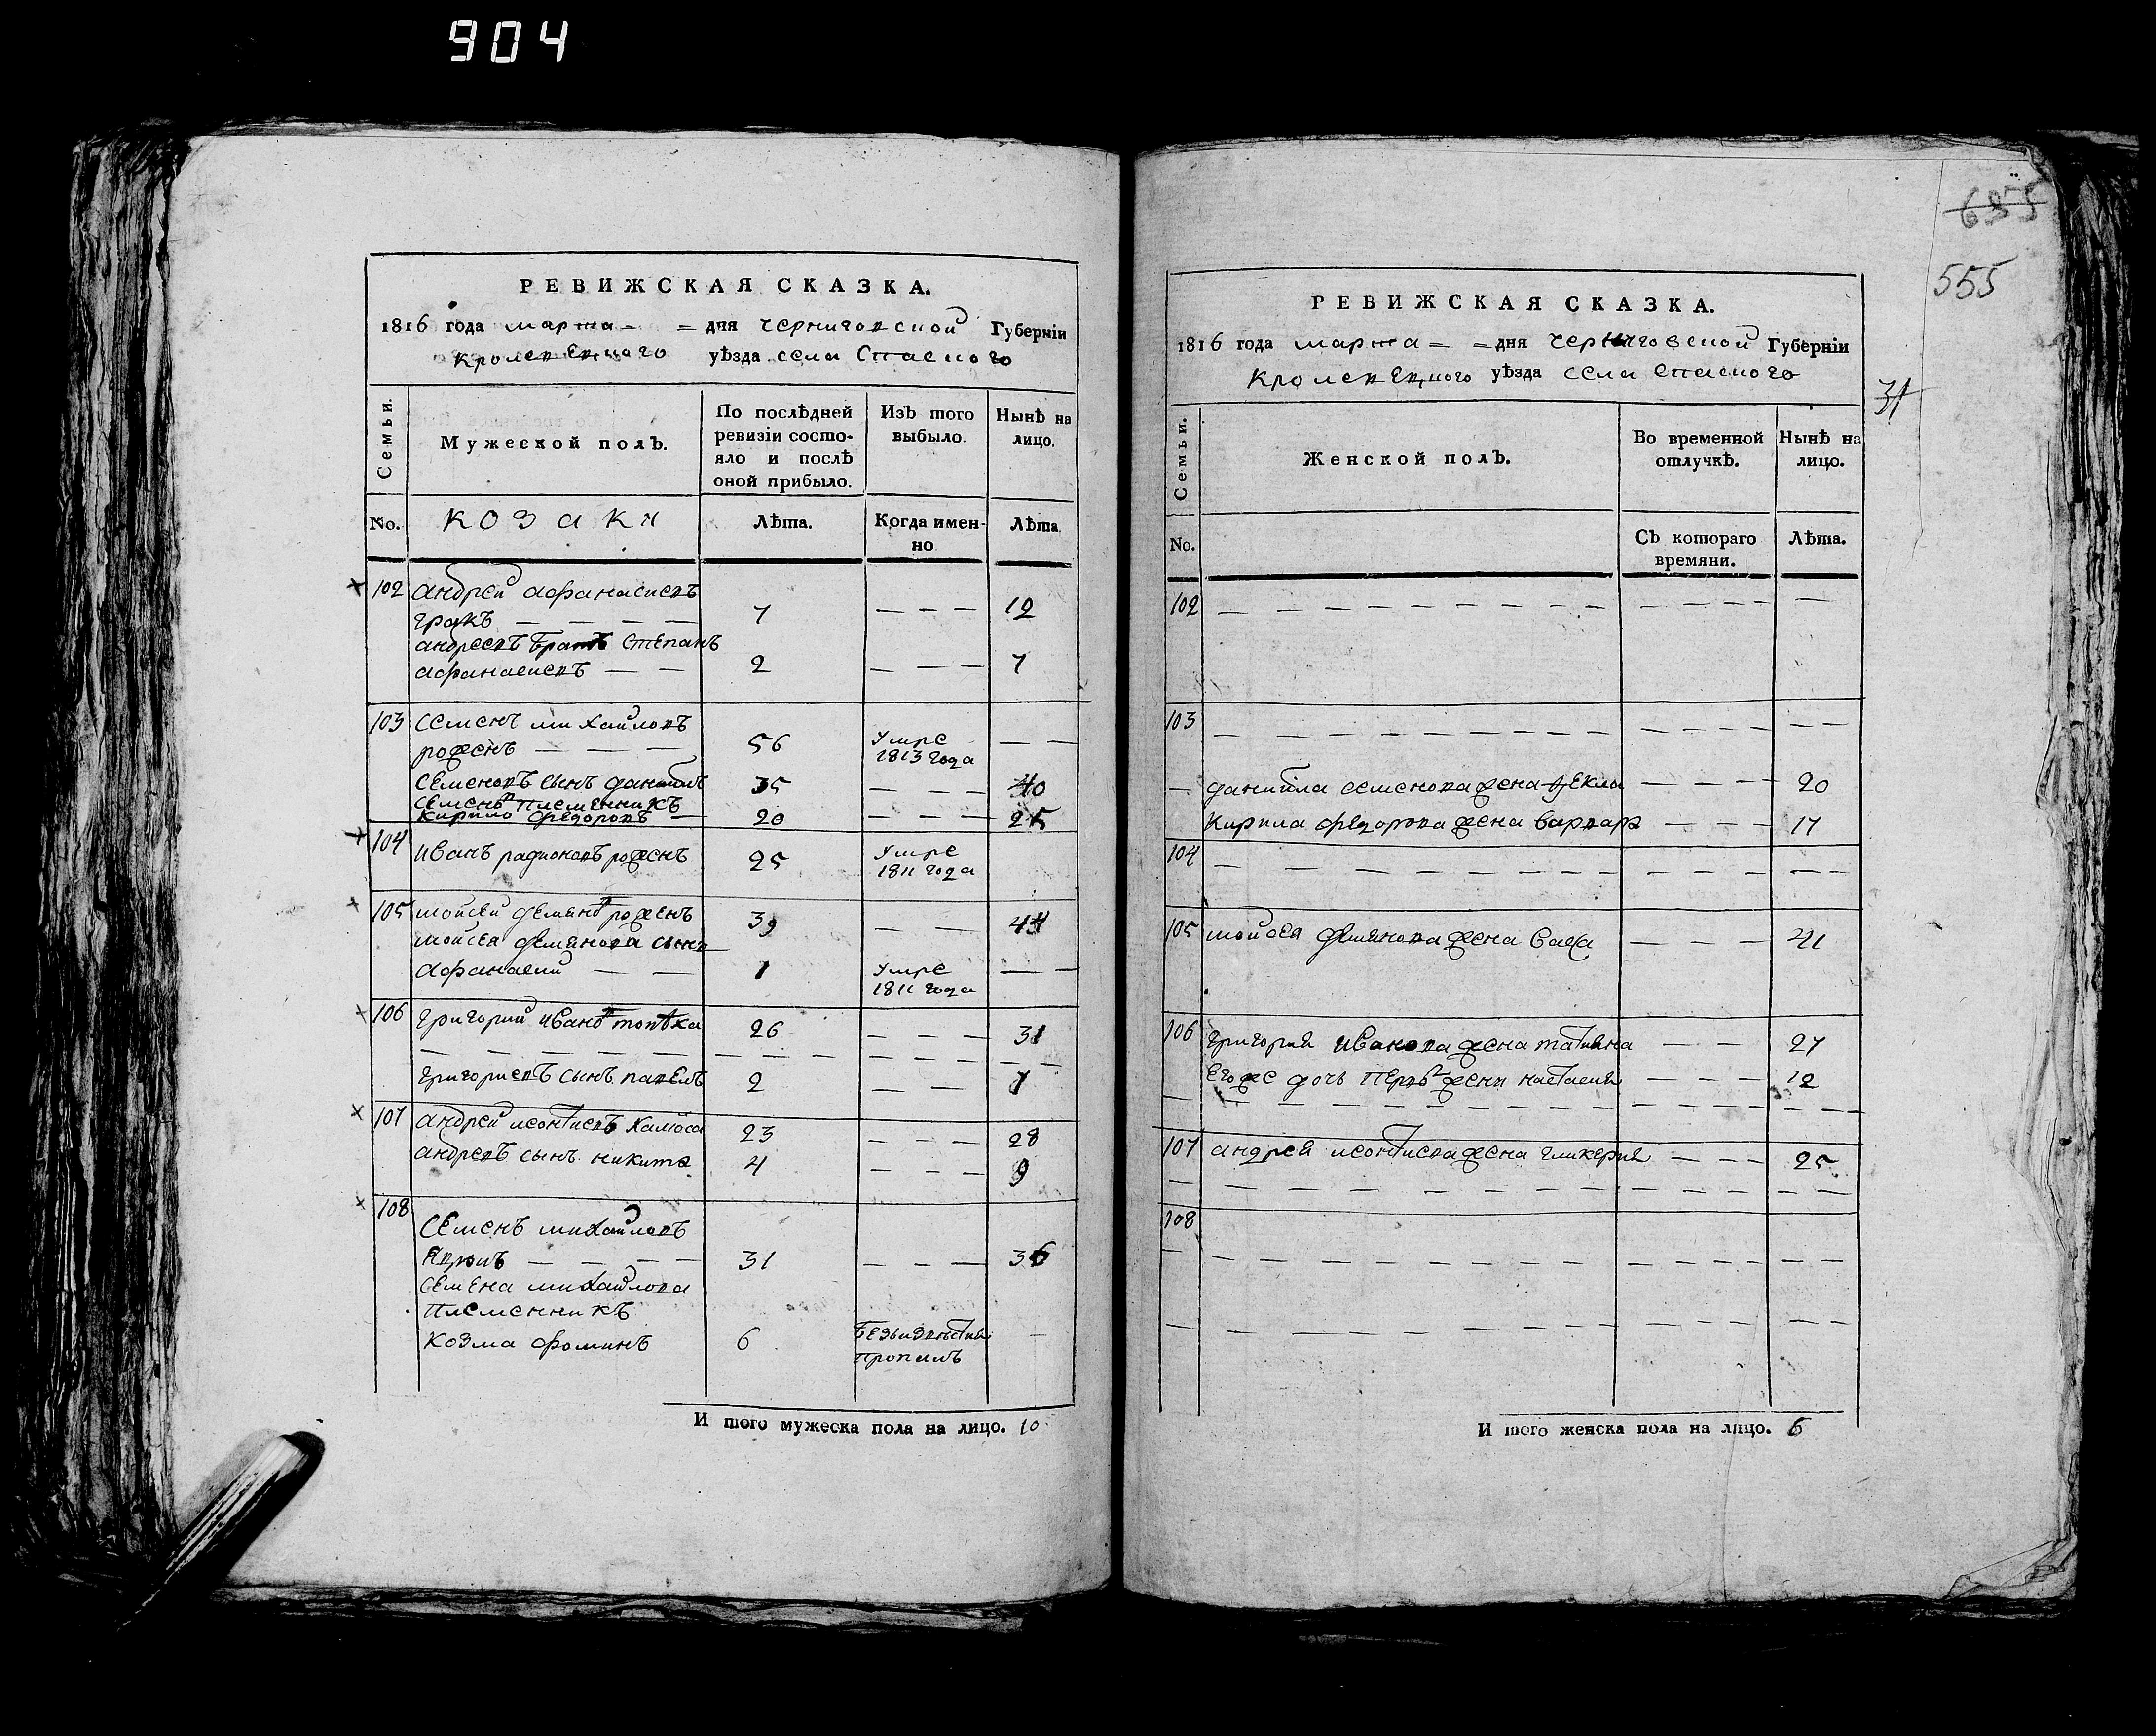 904
РЕВИЖСКАЯ СКАЗКА.
1816 года марта = = дня черниговской Губерніи
Кролевецкого уѣзда села Спаского
Семьи.
Мужеской полъ.
По послѣдней
ревизіи состо-
яло и послѣ
оной прибыло.
Изъ того
выбыло.
Нынѣ на
лицо.
No.
козаки
Лѣта.
Когда имен-
но
Лѣта
102 андрей афанасиевъ
гракъ — — — — 7 — — — 12
андреевъ братъ степанъ
афанасиевъ — — 2 — — — 7
103 семенъ михайловъ
роженъ — — — 56 умре — —
1813 года
семеновъ сынъ даниилъ 35 — — — 40
семенов племенникъ
кирило федоровъ — 20 — — — 25
104 иванъ радионовъ роженъ 25 умре
1811 года
105 мойсей демянов роженъ 39 — — 44
мойсея демянова сынъ
афанасий — — 1 умре — —
1811 года
106 григорий иванов 26 — — — 31
григориевъ сынъ павелъ 2 — — 7
107 андрей леонтиевъ 23 — — — 28
андреевъ сынъ никита 4 — — — 9
108
семенъ михайловъ
— — — — 31 — — — 36
семена михайлова
племенникъ
козма фоминъ 6 безъизвѣстно —
пропалъ
И того мужеска пола на лицо. 10
655
555
31
РЕВИЖСКАЯ СКАЗКА.
1816 года марта = = дня черниговской Губерніи
Кролевецкого уѣзда села спаского
Семьи.
Женской полъ.
Во временной
отлучкѣ.
Нынѣ на
лицо.
No.
Съ котораго
времяни.
Лѣта.
102
103
— даниила семенова жена фекла — — — 20
кирила федорова жена варвара — — — 17
104
105 мойсея демянова жена васса — — — 41
106 григория иванова жена татияна — — 27
его же дочь перв жени настасия — — — 12
107 андрея леонтиева жена гликерия — — — 25
108
И того женска пола на лицо. 6